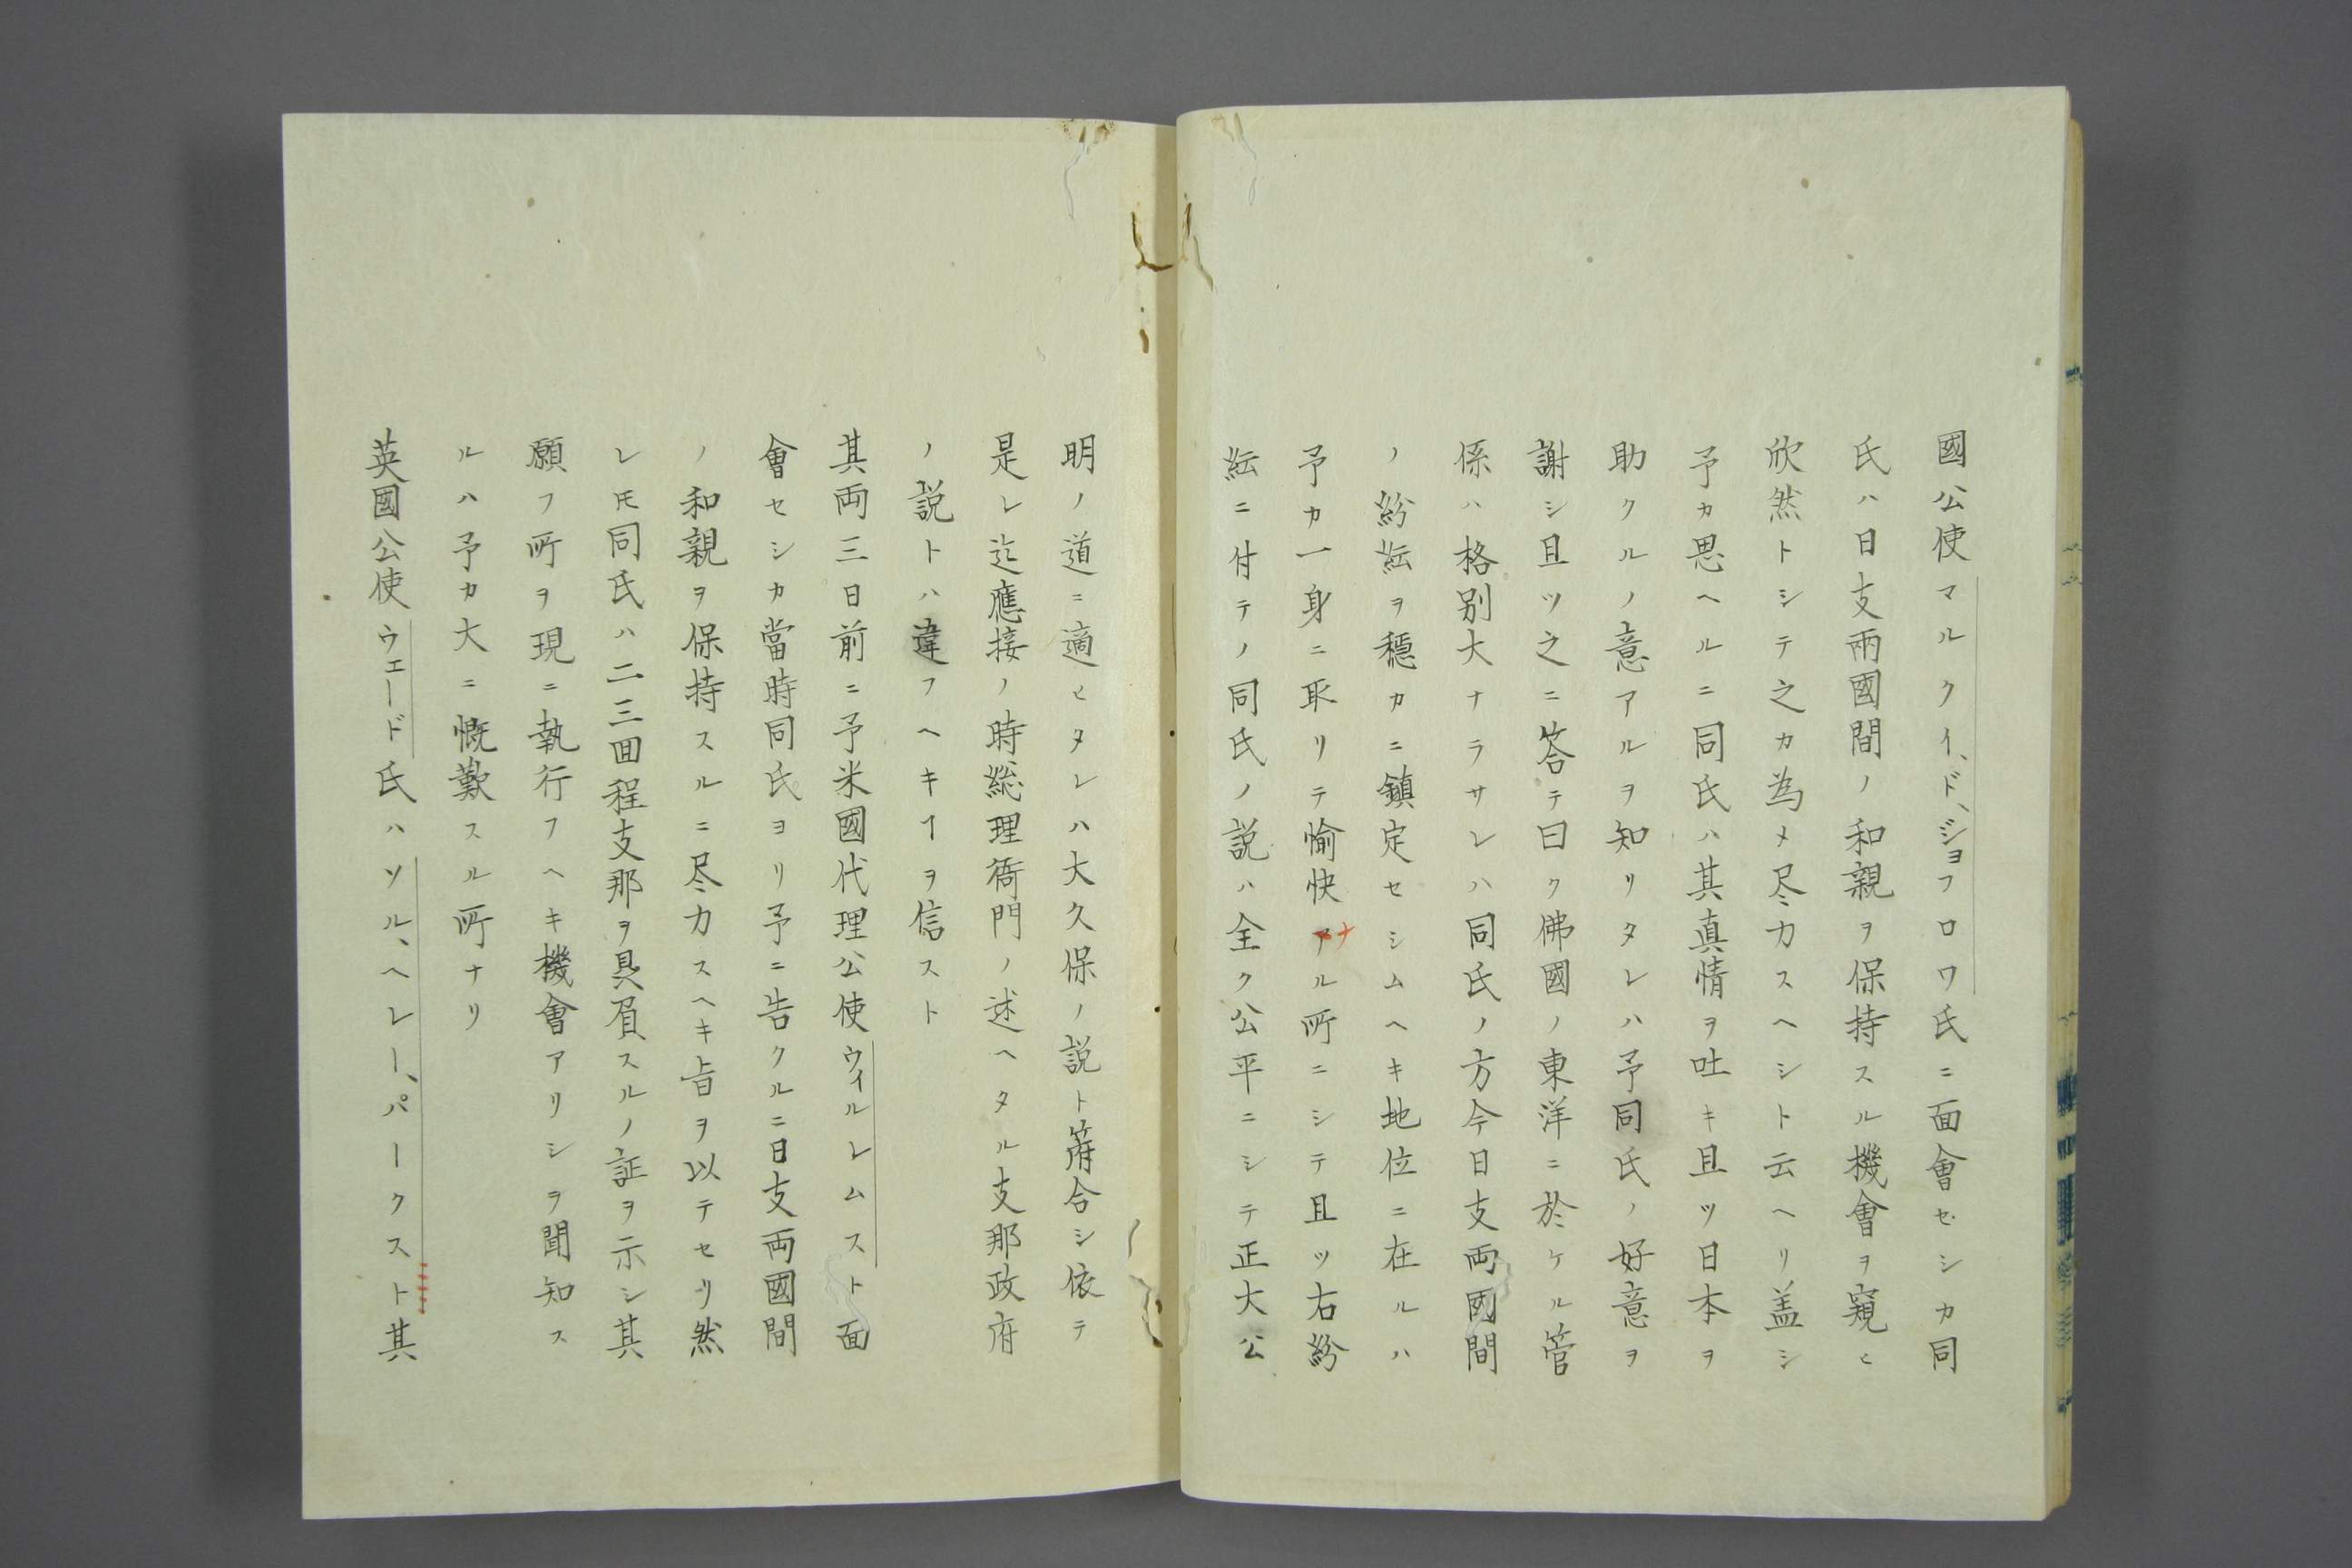 國公使マルクイ、ド、ジョフロワ氏ニ面會セシカ同
氏ハ日支兩國間ノ和親ヲ保持スル機會ヲ窺ヒ
欣然トシテ之カ為メ尽力スヘシト云ヘリ盖シ
予カ思ヘルニ同氏ハ其真情ヲ吐キ且ツ日本ヲ
助クルノ意アルヲ知リタレハ予同氏ノ好意ヲ
謝シ且ツ之ニ答テ曰ク佛國ノ東洋ニ於ケル管
係ハ格別大ナラサレハ同氏ノ方今日支両國間
ノ紛紜ヲ穏カニ鎮定セシムヘキ地位ニ在ルハ
予カ一身ニ取リテ愉快ナル所ニシテ且ツ右紛
紜ニ付テノ同氏ノ説ハ全ク公平ニシテ正大公
明ノ道ニ適ヒタレハ大久保ノ説ト符合シ依テ
是レ迄應接ノ時総理衙門ノ述ヘタル支那政府
ノ説トハ違フヘキヿヲ信スト
其両三日前ニ予米國代理公使ウィルレムスト面
會セシカ當時同氏ヨリ予ニ告クルニ日支両國間
ノ和親ヲ保持スルニ尽力スヘキ旨ヲ以テセリ然
レ𪜈同氏ハ二三囬程支那ヲ具屓スルノ証ヲ示シ其
願フ所ヲ現ニ執行フヘキ機會アリシヲ聞知ス
ルハ予カ大ニ慨歎スル所ナリ
英國公使ウエード氏ハソル、ヘレー、パークスト其